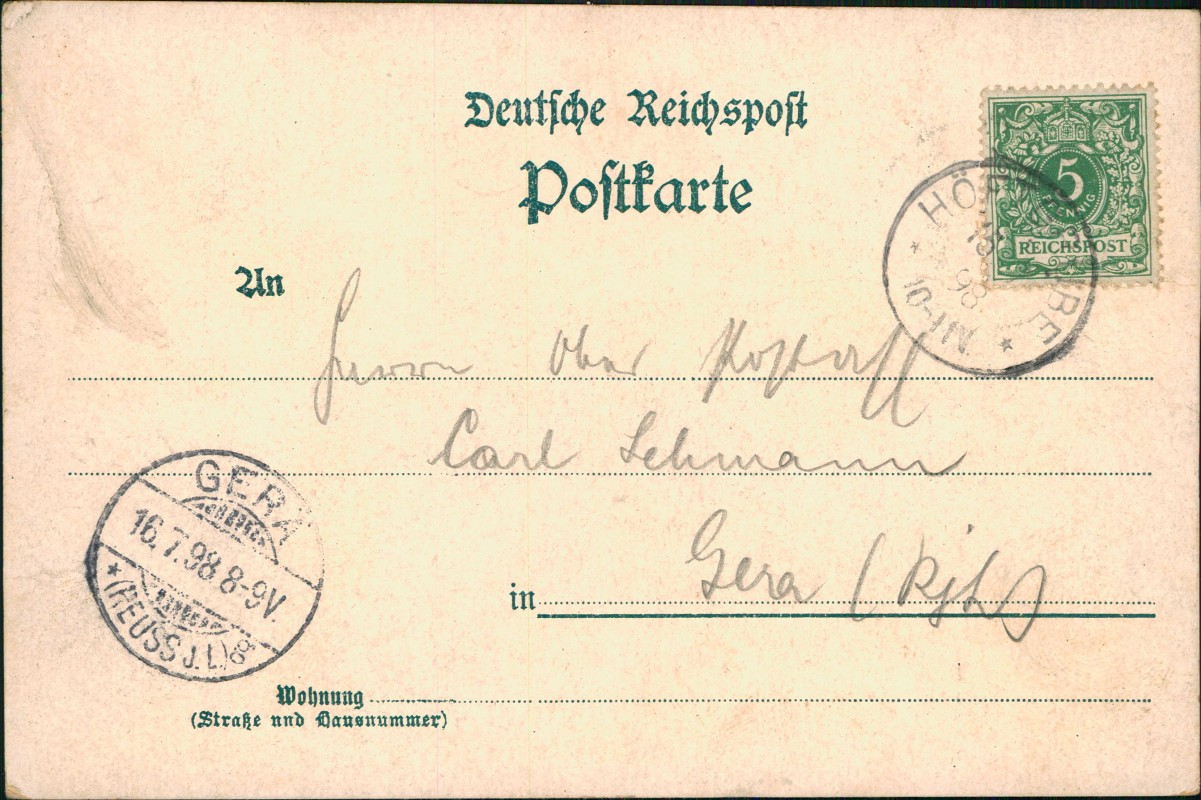 Deutsche Reichspost
Postkarte
5
PFENNIG
REICHSPOST
98
10-11 N
An
Herrn Ober Postass
Carl Lehmann
in Gera
GERA
16.7.98 8-9V.
* (REUSS J.L.)
Wohnung
(Straße und Hausnummer)